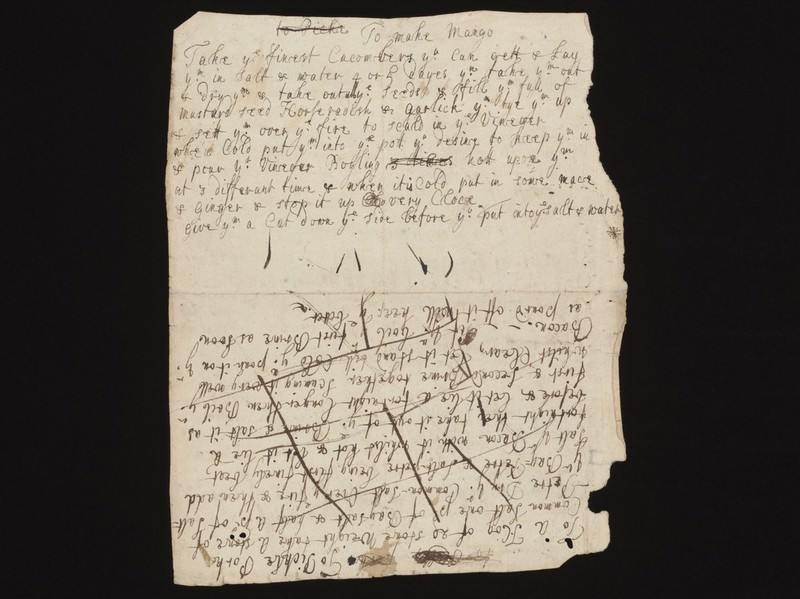 to Pickl To make Mango
Take yᵉ finest Cucombers yᵘ can gett & Lay
yᵐ in Salt & water 4 or 5 dayes yⁿ take yᵐ out
& dry yᵐ & take out yᵉ seeds & fill yᵐ full of
mustard seed Horseradish & garlick yⁿ tye yᵐ up
& sett yᵐ over yᵉ fire to scald in yᵉ Vineger
when Cold put yᵐ into yᵉ pot yᵘ desire to keep yᵐ in
& pour yᵉ Vineger Boyling hott upon yᵐ
at 3 differant times & when it is Cold put in some mace
& Ginger & stop it up very Close
Give yᵐ a Cut down yᵉ side before yᵘ put into yᵉ salt & water
To Pickle Porke
To a Hog of 20 stone Weight take a stone of
Common Salt one pᵈ of Baysalt & half a pᵈ of Salt
Petre Dry yᵉ Common Salt over yᵉ fire & then add
yᵉ Bay Petre & Salt-petre being first finely beet
Salt yᵉ Bacon with it whilst hot & let it lie a
fortnight then take it out of yᵉ Brine & salt it as
before & let it lie a fortnight longer then Boil yᵉ
first & second Brine together scuming it very well
whilst Clean Let it stand till Cold yⁿ pour it on yᵉ
Bacon Boil yᵉ first Brine as soon
as pour'd off it will keep yᵉ better